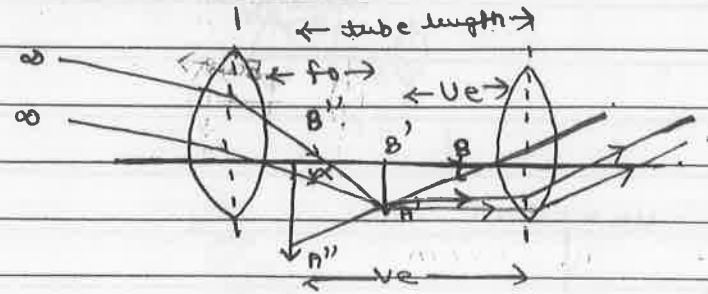 ← tube length →
∞
← fo →
∞
← Ue →
B''
B'
B
α
A'
A''
← Ve →